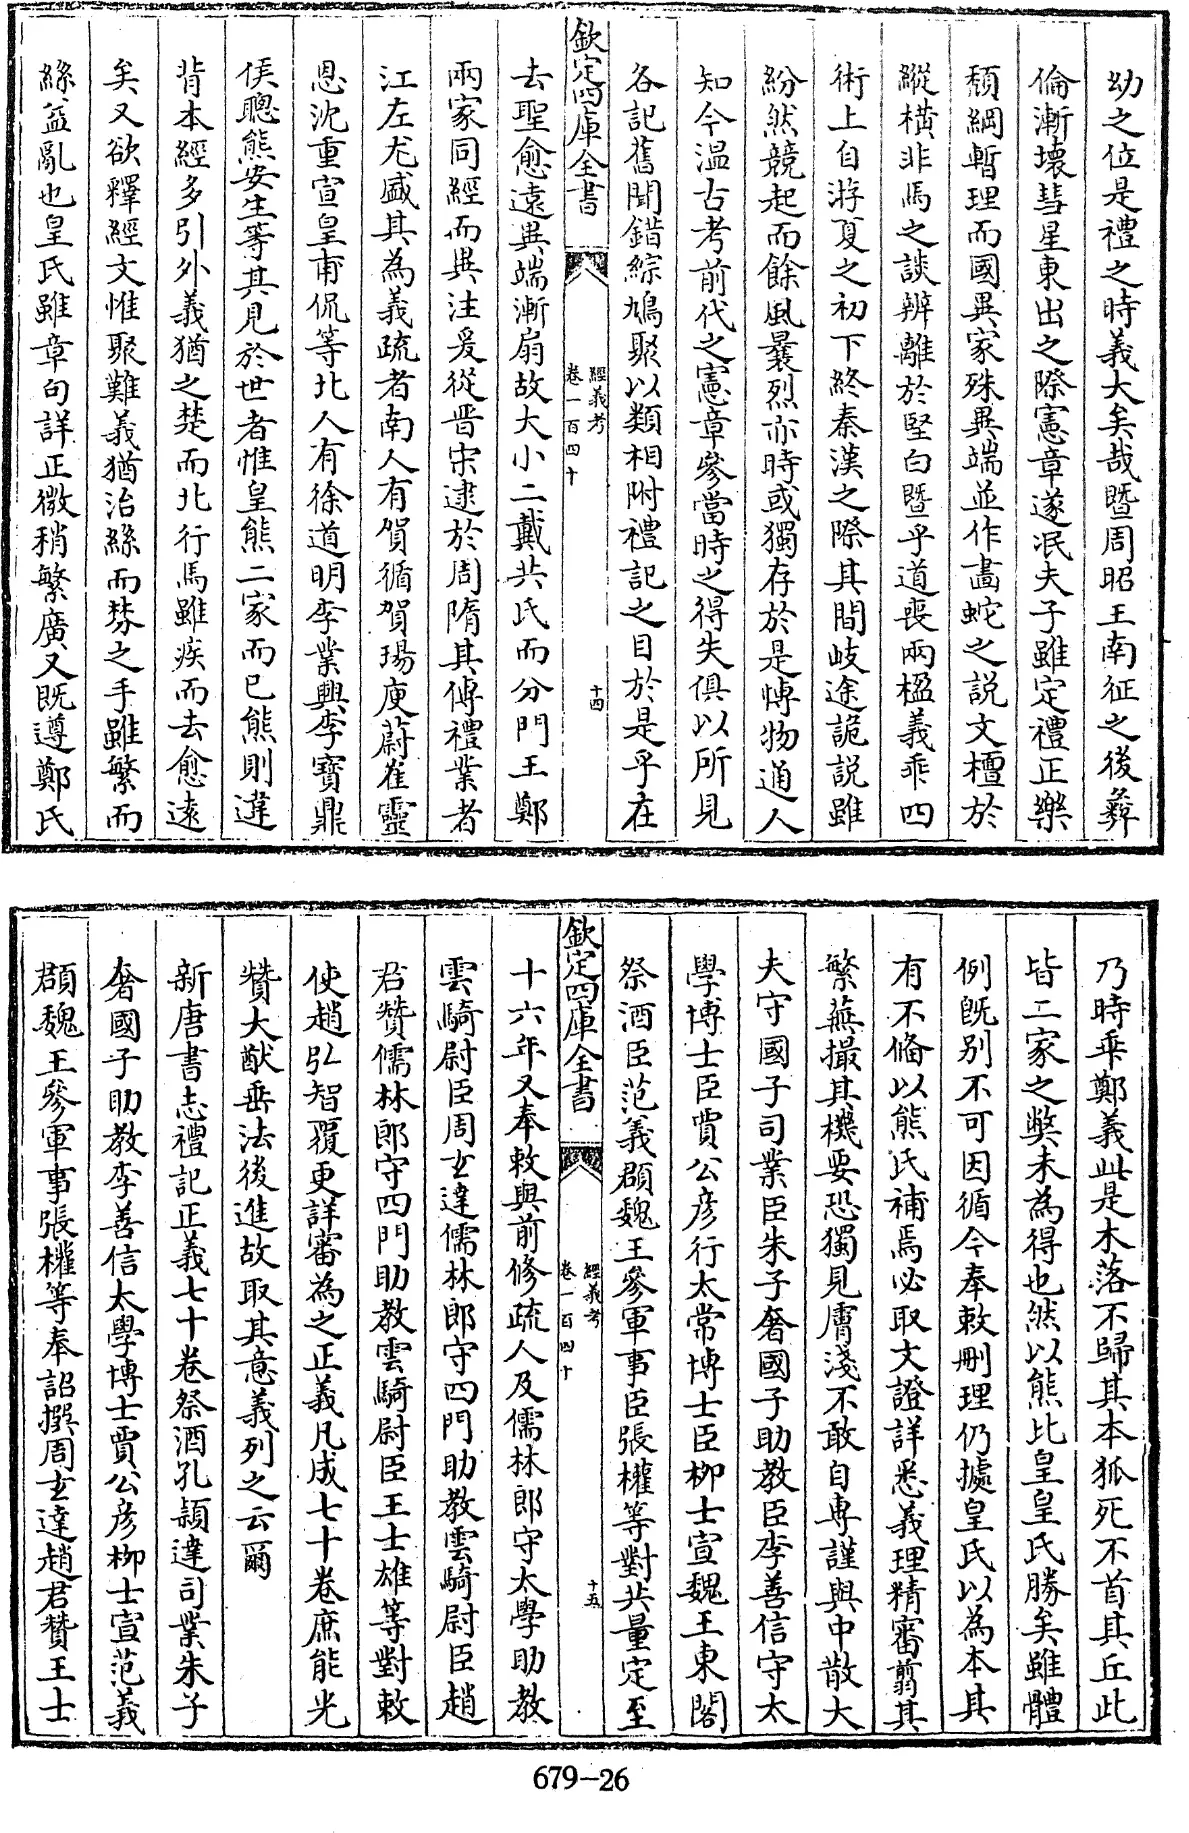 幼之位是禮之時義大矣哉暨周昭王南征之後彞
倫漸壞彗星東出之際憲章遂泯夫子雖定禮正樂
頽綱暫理而國異家殊異端並作畫蛇之説文擅於
縱橫非馬之談辨離於堅白暨乎道喪兩楹義乖四
術上自游夏之初下終秦漢之際其間岐途詭説雖
紛然競起而餘風曩烈亦時或獨存於是博物通人
知今温古考前代之憲章參當時之得失俱以所見
各記舊聞錯綜鳩聚以類相附禮記之目於是乎在
欽定四庫全書
經義考
卷一百四十
十四
去聖愈遠異端漸扇故大小二戴共氏而分門王鄭
兩家同經而異注爰從晋宋逮於周隋其傳禮業者
江左尤盛其為義疏者南人有賀循賀瑒庾蔚崔靈
恩沈重宣皇甫侃等北人有徐道明李業興李寶鼎
侯聰熊安生等其見於世者惟皇熊二家而已熊則違
背本經多引外義猶之楚而北行馬雖疾而去愈遠
矣又欲釋經文惟聚難義猶治絲而棼之手雖繁而
絲益亂也皇氏雖章句詳正微稍繁廣又既遵鄭氏
乃時乖鄭義此是木落不歸其本狐死不首其丘此
皆二家之弊未為得也然以熊比皇皇氏勝矣雖體
例既别不可因循今奉敕刪理仍據皇氏以為本其
有不備以熊氏補焉必取文證詳悉義理精審翦其
繁蕪撮其機要恐獨見膚淺不敢自專謹與中散大
夫守國子司業臣朱子奢國子助教臣李善信守太
學博士臣賈公彦行太常博士臣柳士宣魏王東閣
祭酒臣范義頵魏王參軍事臣張權等對共量定至
欽定四庫全書
經義考
卷一百四十
十五
十六年又奉敕與前修疏人及儒林郎守太學助教
雲騎尉臣周𤣥達儒林郎守四門助教雲騎尉臣趙
君贊儒林郎守四門助教雲騎尉臣王士雄等對敕
使趙弘智覆更詳審為之正義凡成七十卷庶能光
贊大猷垂法後進故取其意義列之云爾
新唐書志禮記正義七十卷祭酒孔頴達司業朱子
奢國子助教李善信太學博士賈公彦柳士宣范義
頵魏王參軍事張權等奉詔撰周𤣥達趙君贊王士
679-26